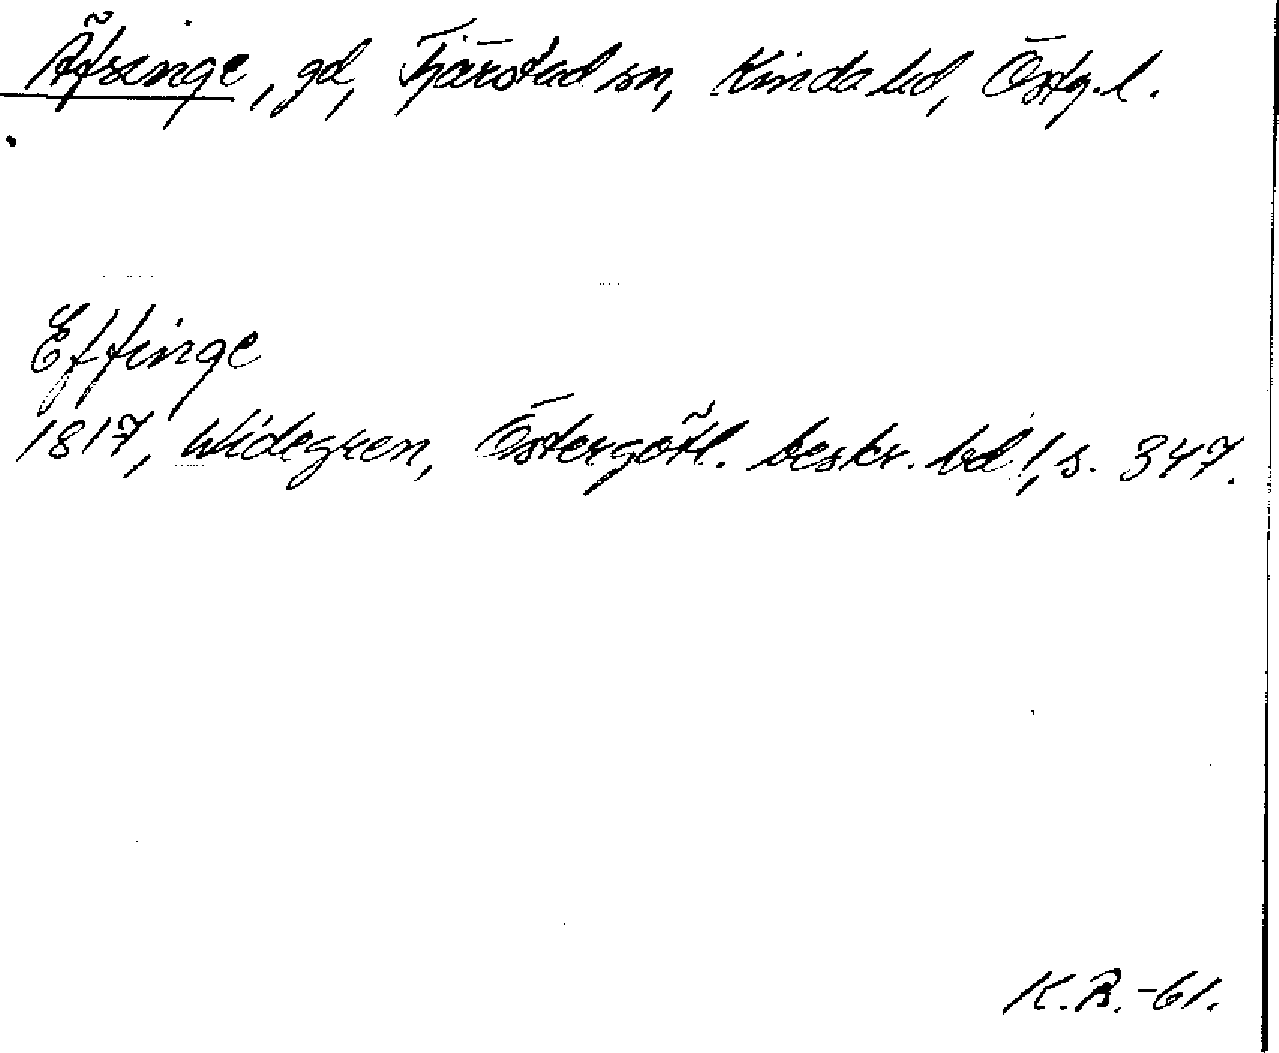 Äfsinge, gd, Tjärstad sn, Kinda hd, Östg.l.
Effinge
1817, Widegren, Östergötl. beskr. bd 1, s. 347.
K.R.-61.